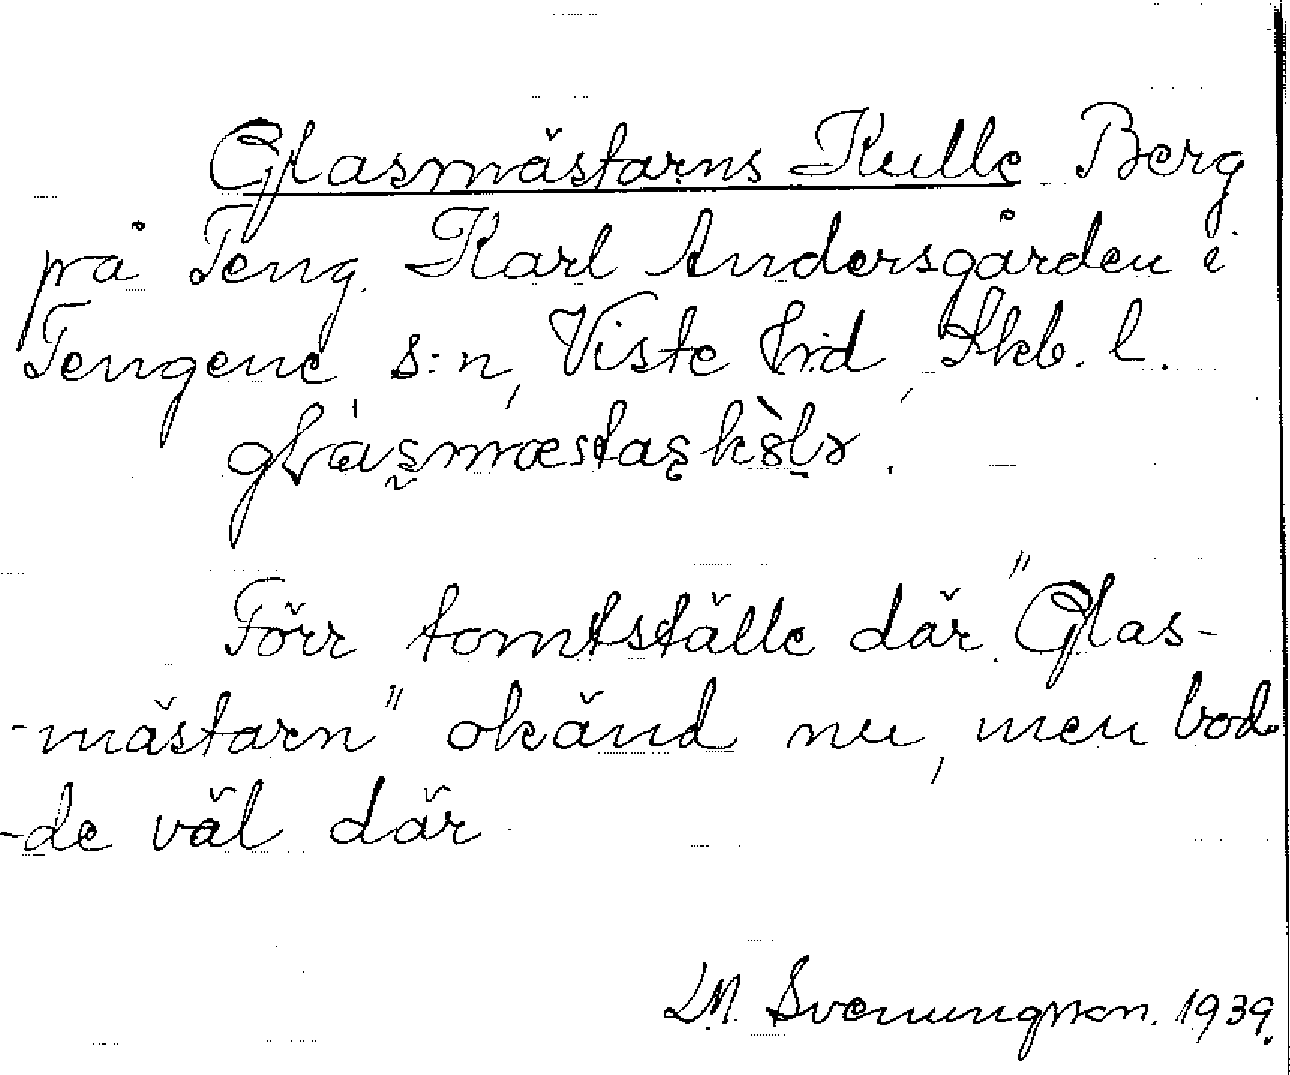 Glasmästarns Kulle Berg
på Teng. Karl Andersgården i
Tengene s:n, Viste hrd, Skb. l.
Förr tomtställe där "Glas-
-mästarn" okänd nu, men bod-
-de väl där
L.M. Svenungsson. 1939.